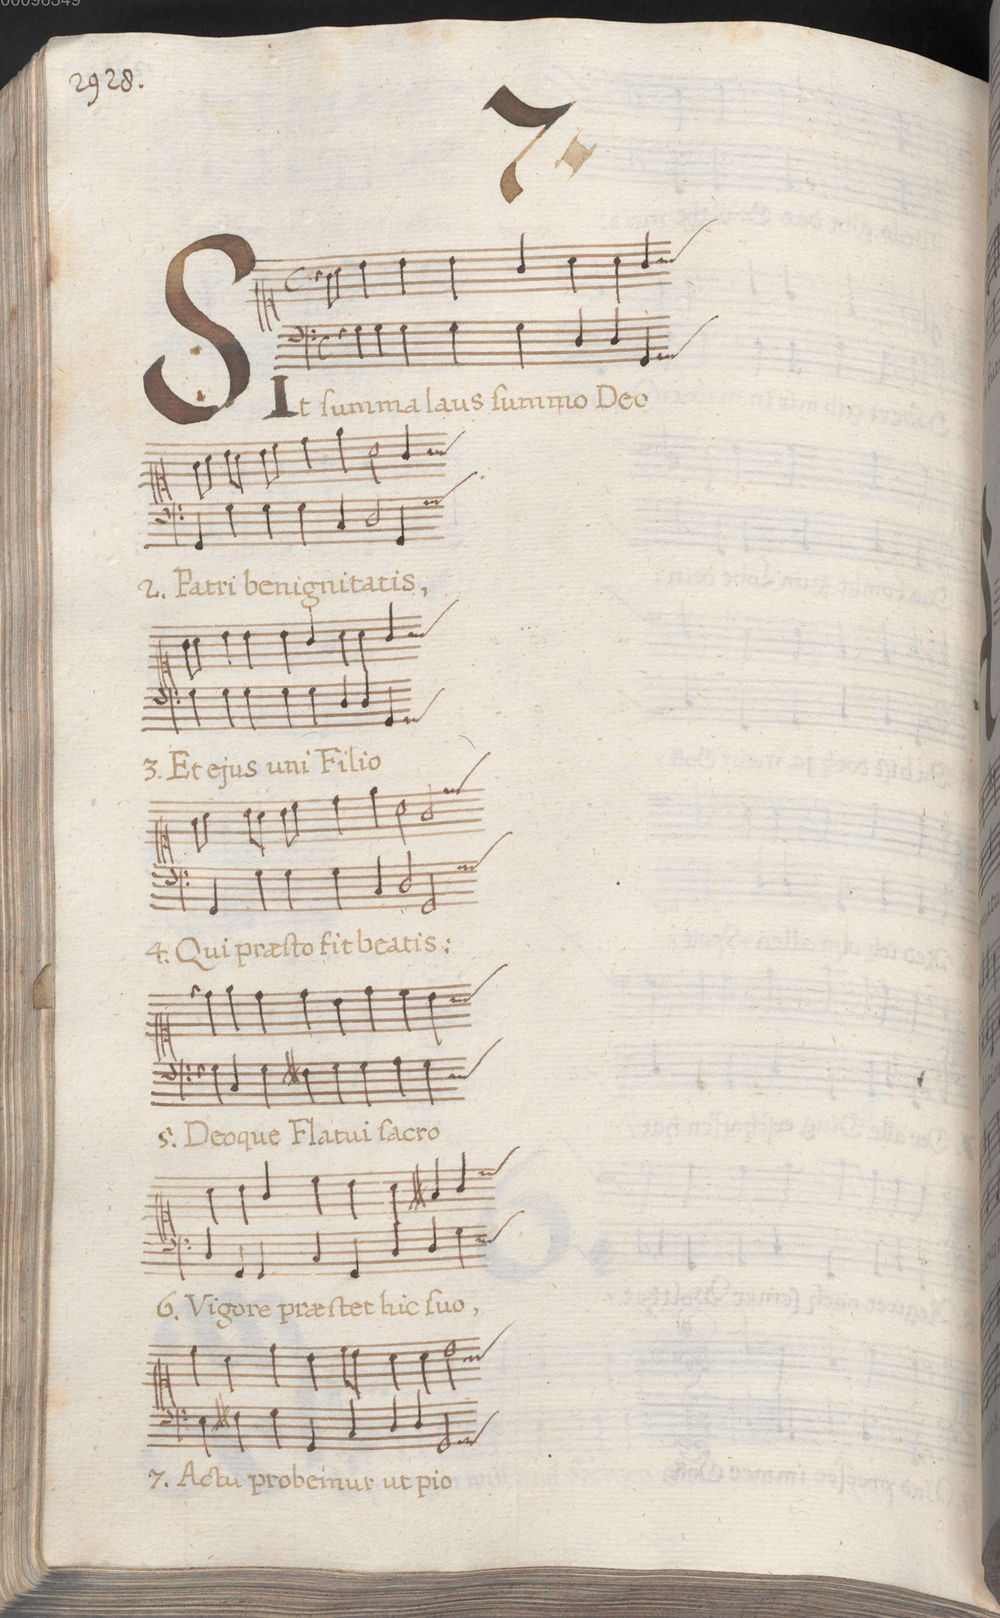 00096549
2928.
7.
SIt ſumma laus ſummo Deo
2. Patri benignitatis,
3. Et ejus uni Filio
4. Qui præſto fit beatis:
5. Deoque Flatui ſacro
6. Vigore præſtet hic ſuo,
7. Actu probemur ut pio